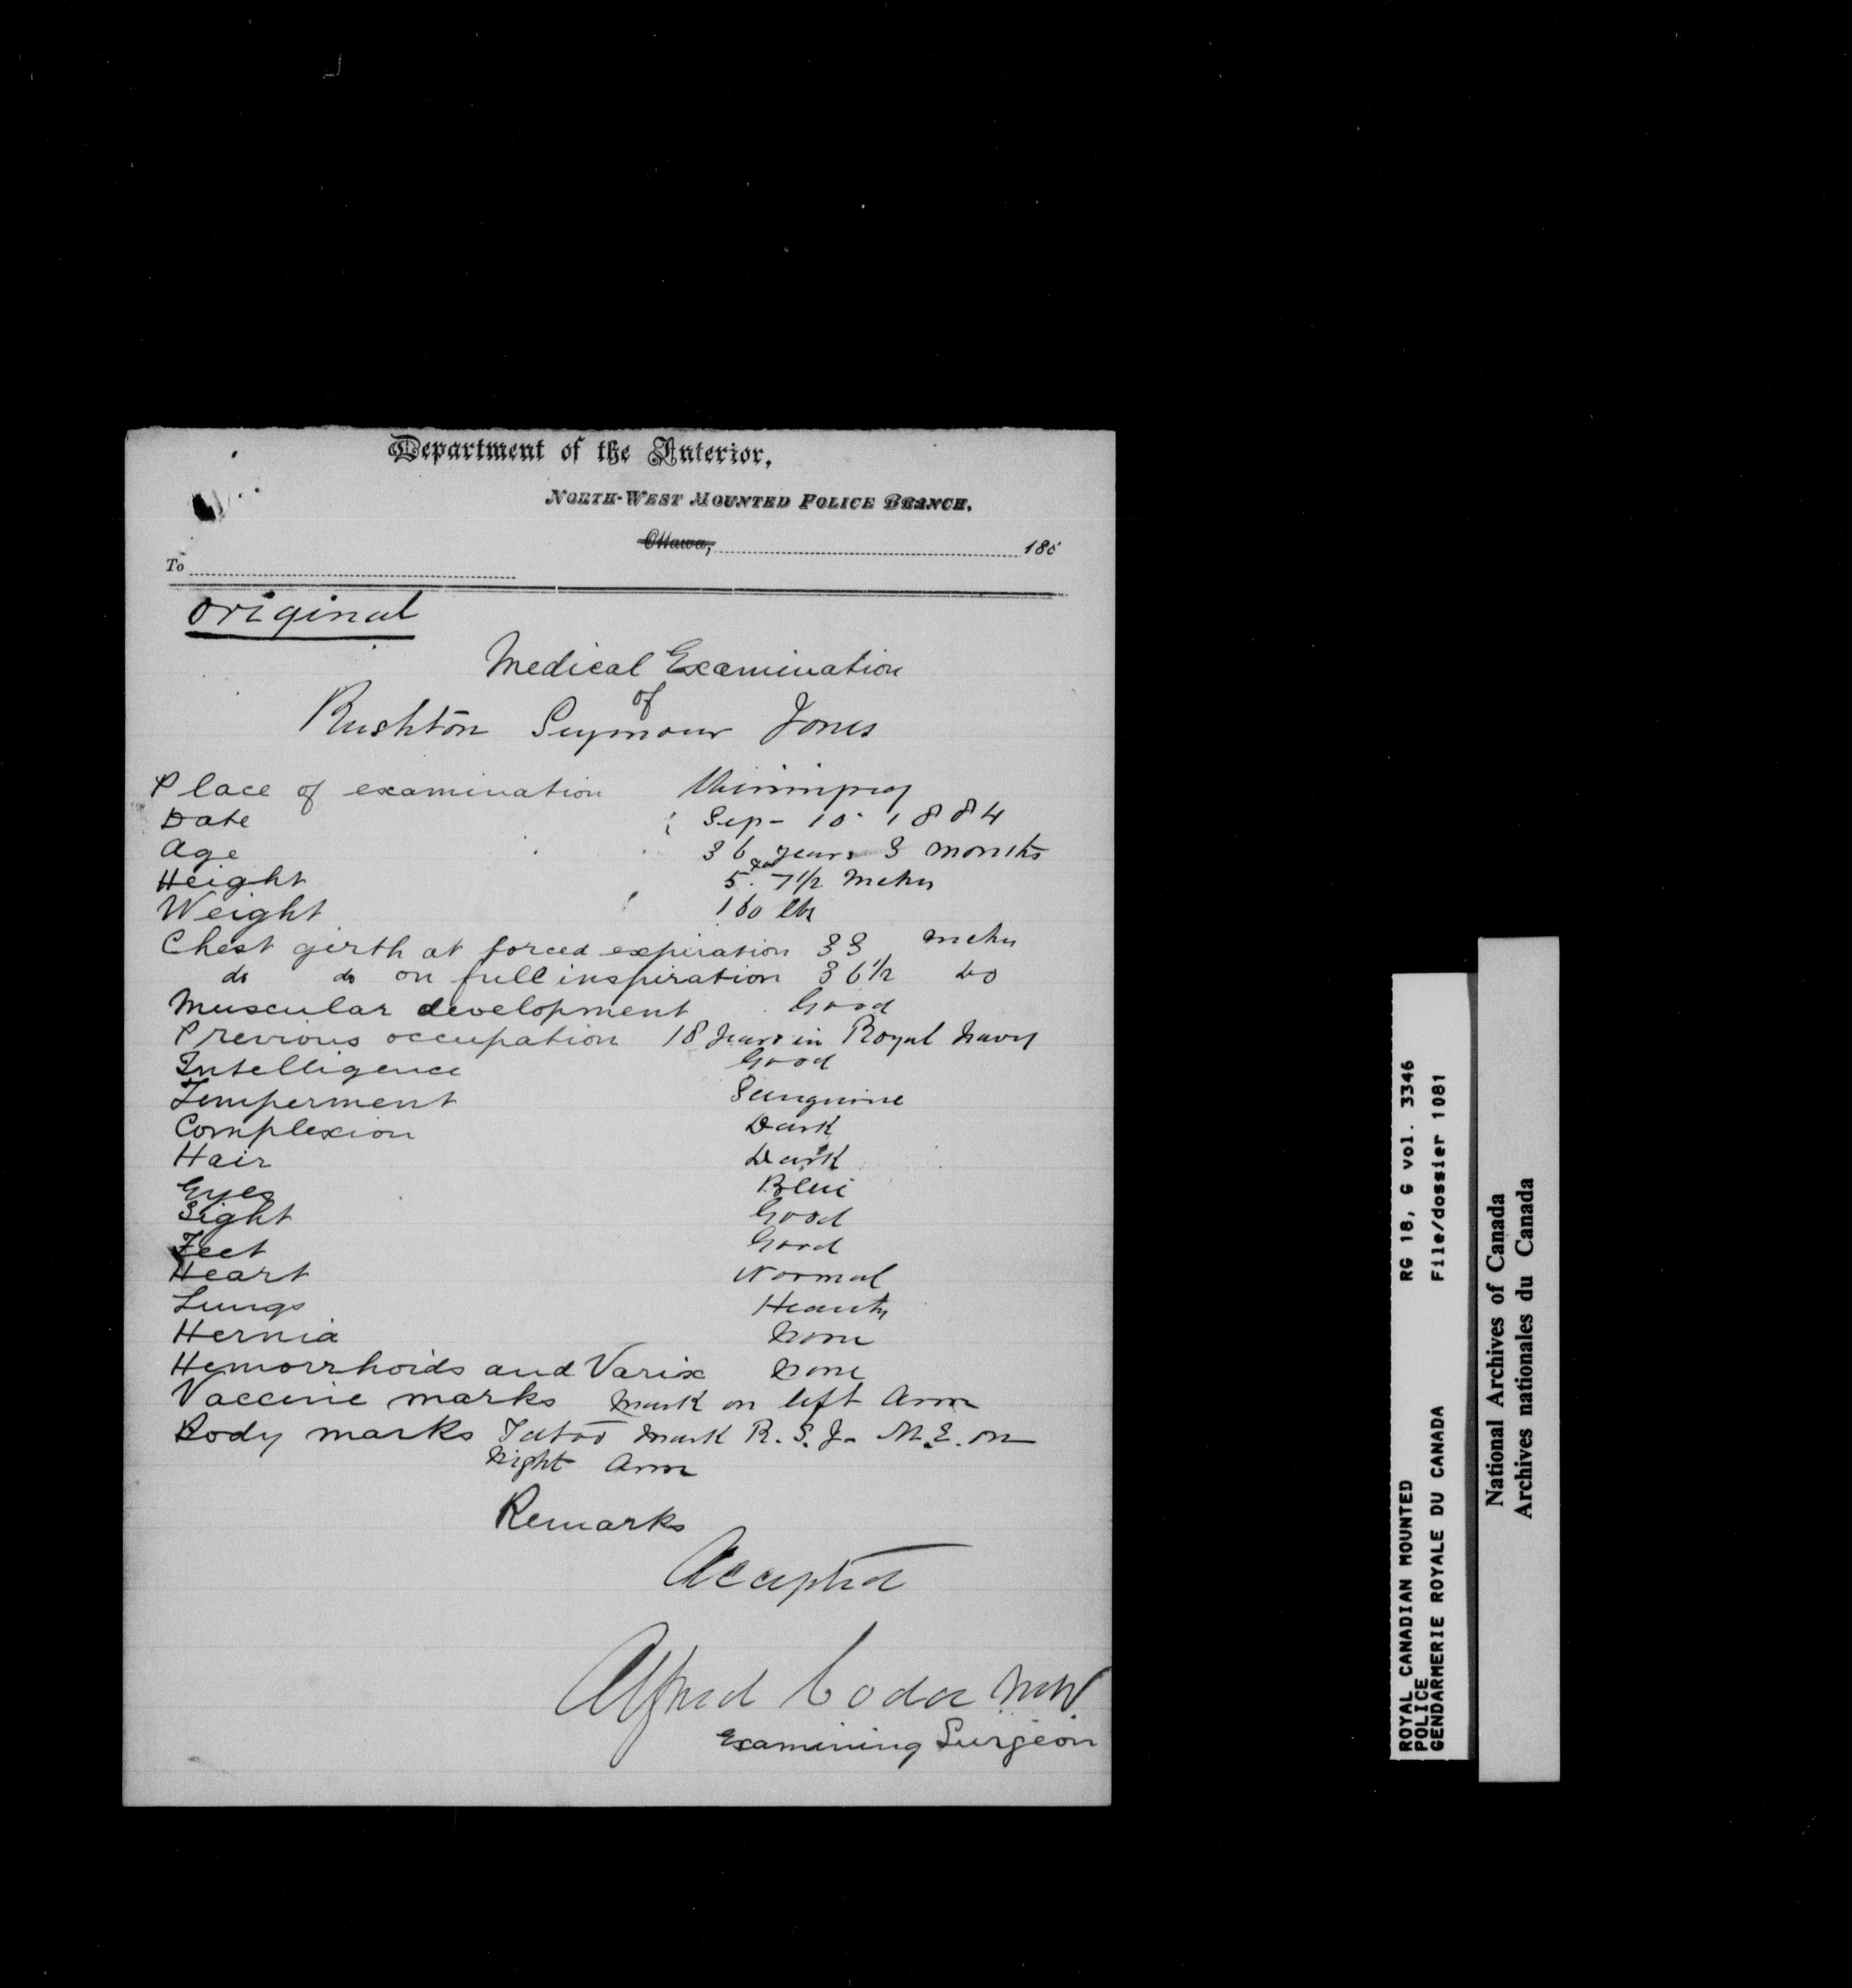 Department of the Interior,
NORTH-WEST MOUNTED POLICE BRANCH.
Ottawa, 188
To
Original
Medical Examination
of
Rushton Seymour Jones
Place of examination Winnipeg
Date Sep- 10 - 1884
Age 36 years 3 months
Height 5. 7 1/2 inches
Weight 160 lbs
Chest girth at forced expiration 33 inches
do do on full inspiration 36 1/2 do
Muscular development Good
Previous occupation 18 years in Royal Navy
Intelligence Good
Temperment Sanguine
Complexion Dark
Hair Dark
Eyes Blue
Sight Good
Feet Good
Heart Normal
Lungs Healthy
Hernia None
Hemorrhoids and Varix None
Vaccine marks Mark on left Arm
Body marks Tatoo Mark R. S. J. M. E. on
Right Arm
Remarks
Accepted
Alfred Codd M.D.
Examining Surgeon
ROYAL CANADIAN MOUNTED RG 18, G vol. 3346
POLICE
GENDARMERIE ROYALE DU CANADA File/dossier 1081
National Archives of Canada
Archives nationales du Canada